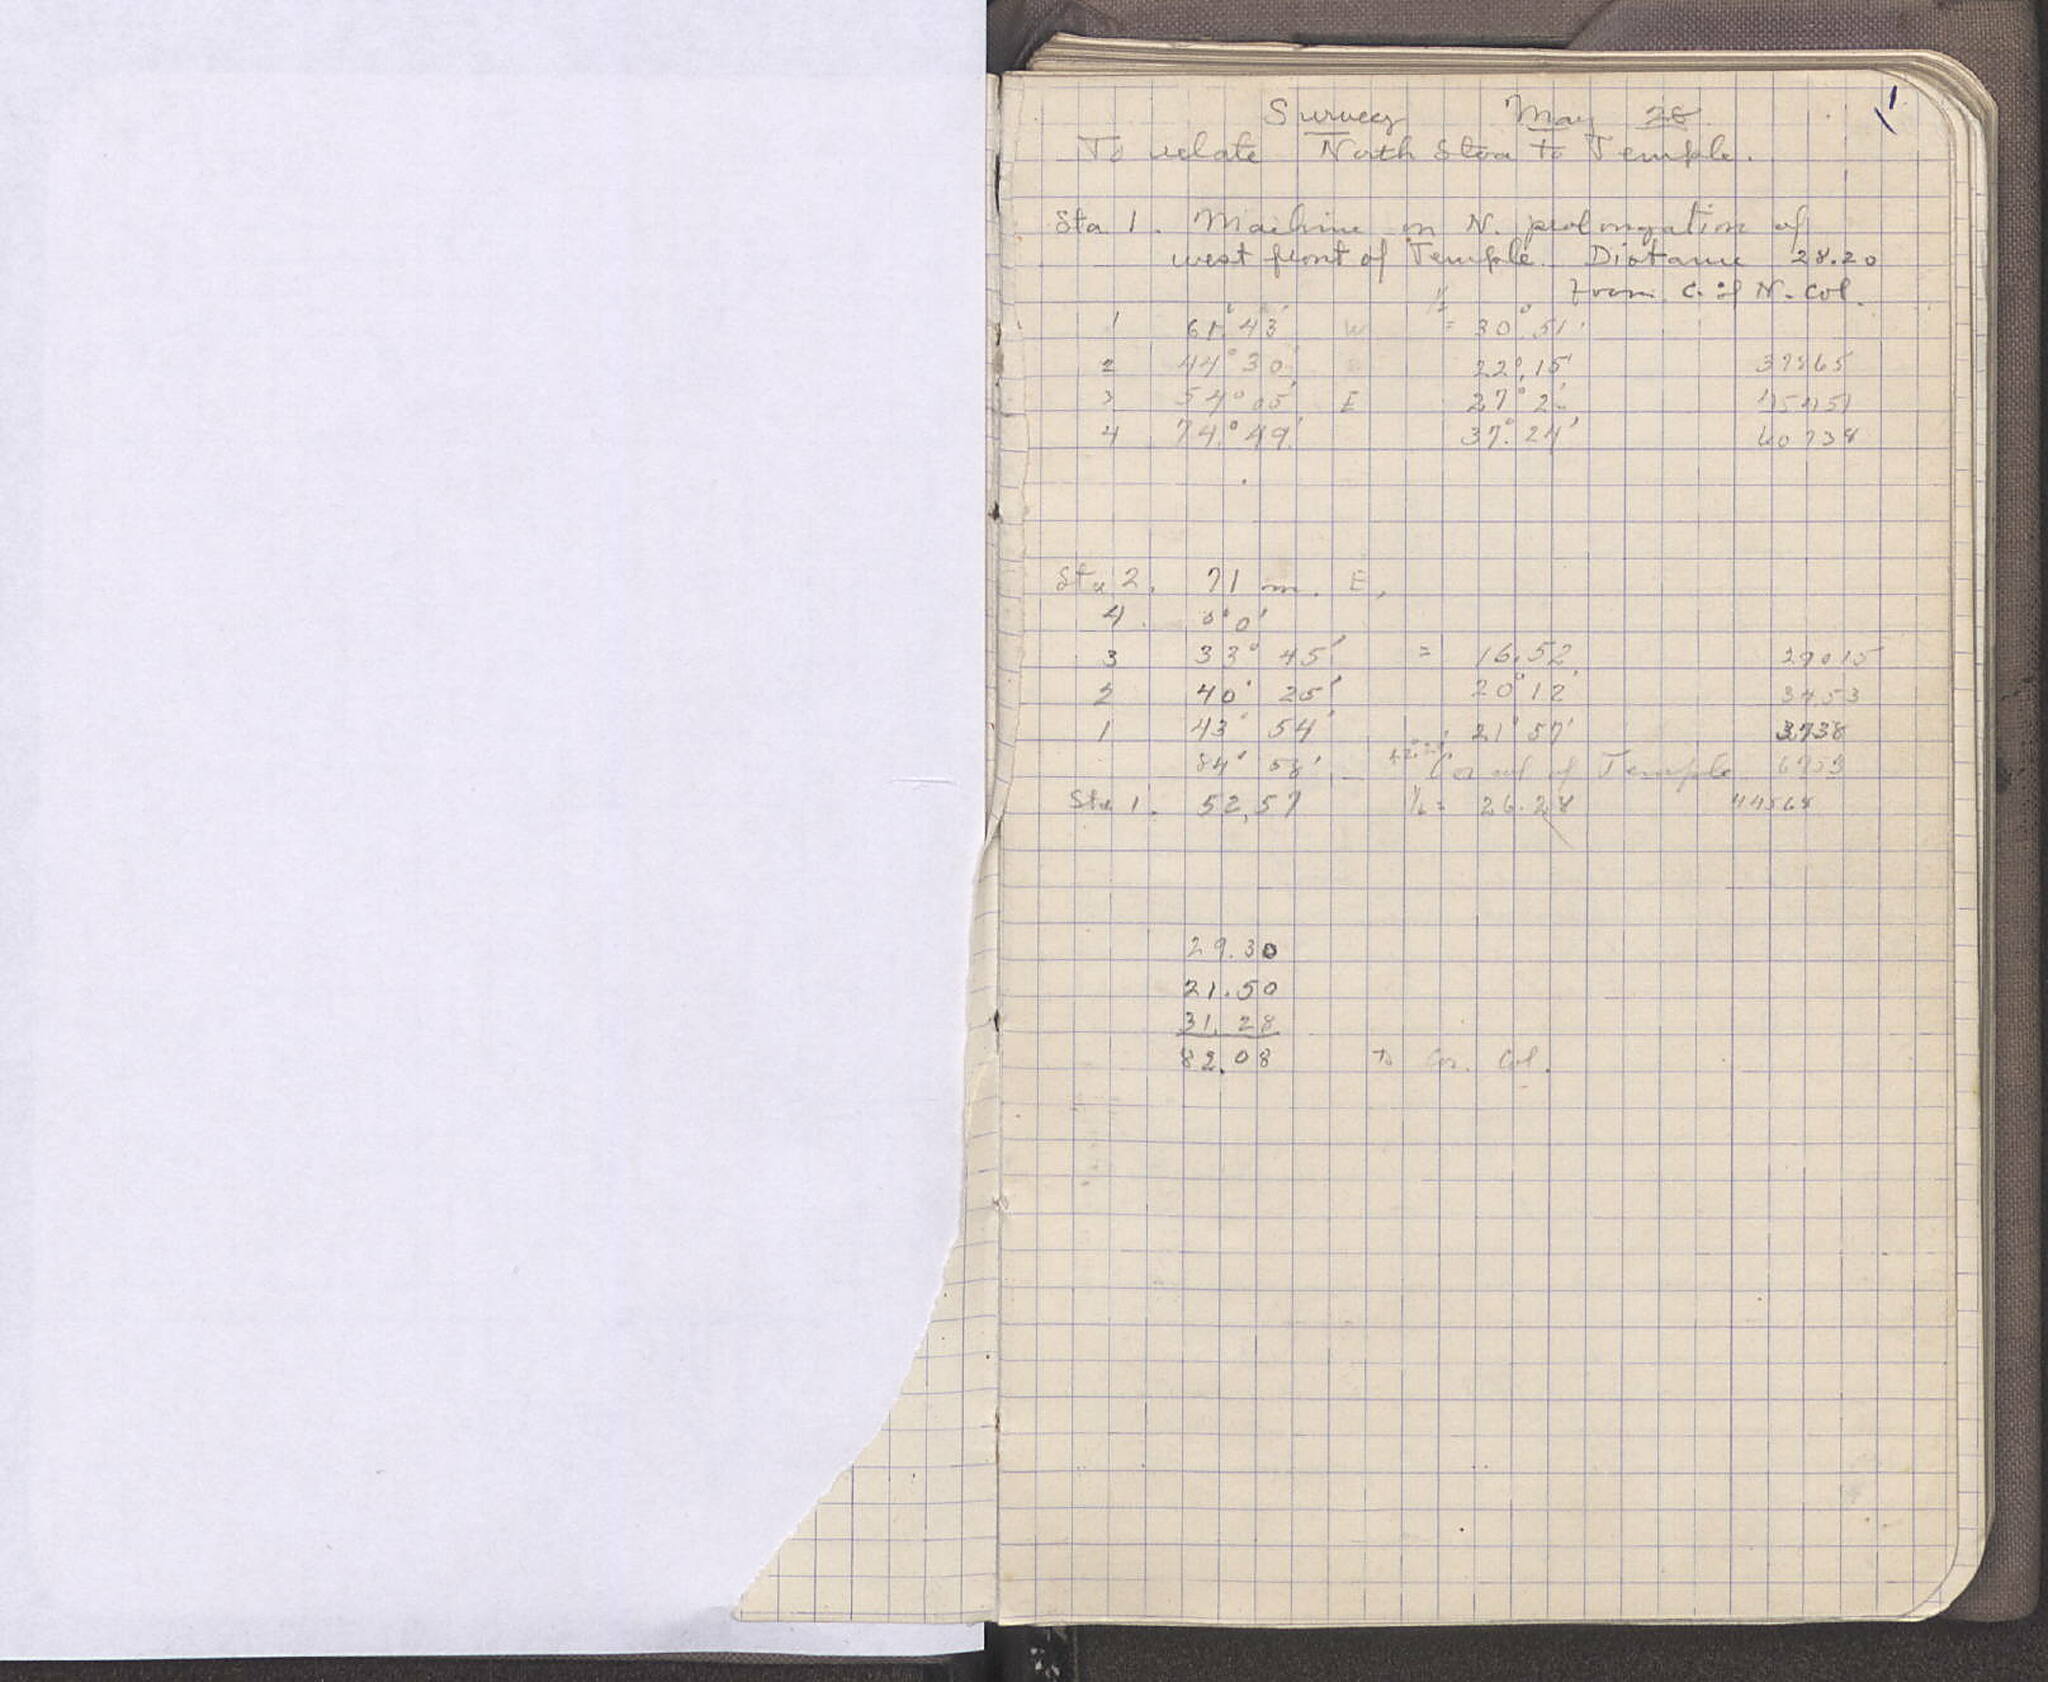 1
Survey May 28
To relate North Stoa to Temple.
Sta 1. Machine on N. prolongation of
west front of Temple. Distance 28.20
from C. of N. Col.
1 61°43' W ½ = 30°51'
2 44°30' 22°,15' 37865
3 54°05' E 27°2' 45451
4 74°49' 37°24' 60738
Sta 2. 71 m. E,
4. 0°0'
3 33°45' = 16.52 29015
2 40°25' 20°12' 3453
1 43°54' 21°57' 3738
84°58' Cor col of Temple 6753
Sta 1. 52,57 ½ = 26.28 44568
29.30
21.50
31.28
82.08 to Cor. Col.